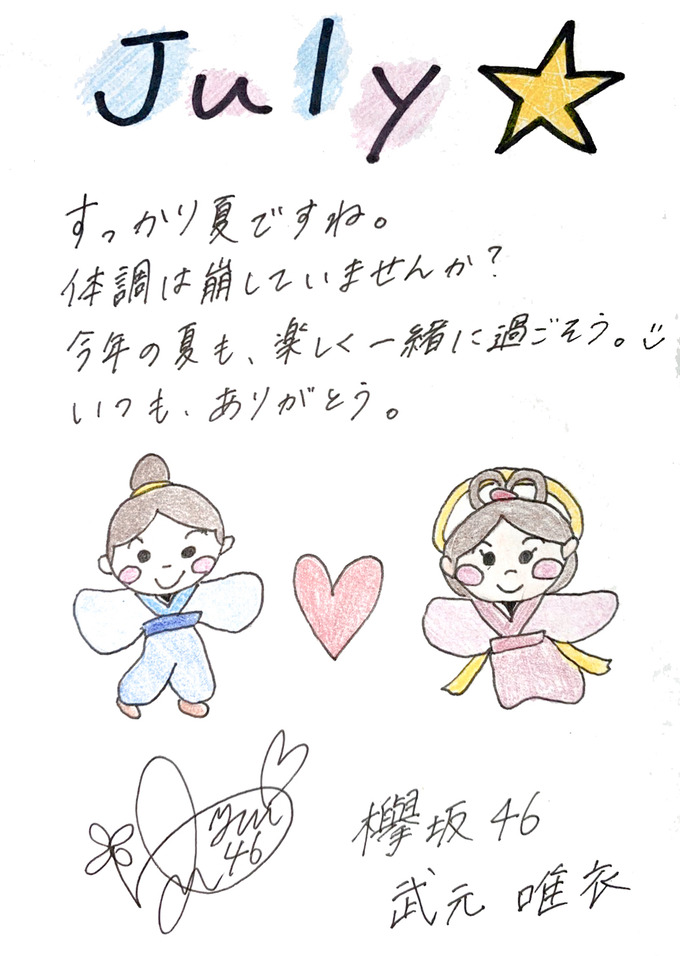 July
すっかり夏ですね。
体調は崩していませんか?
今年の夏も、楽しく一緒に過ごそう。
いつも、ありがとう。
yui
46
欅坂46
武元 唯衣